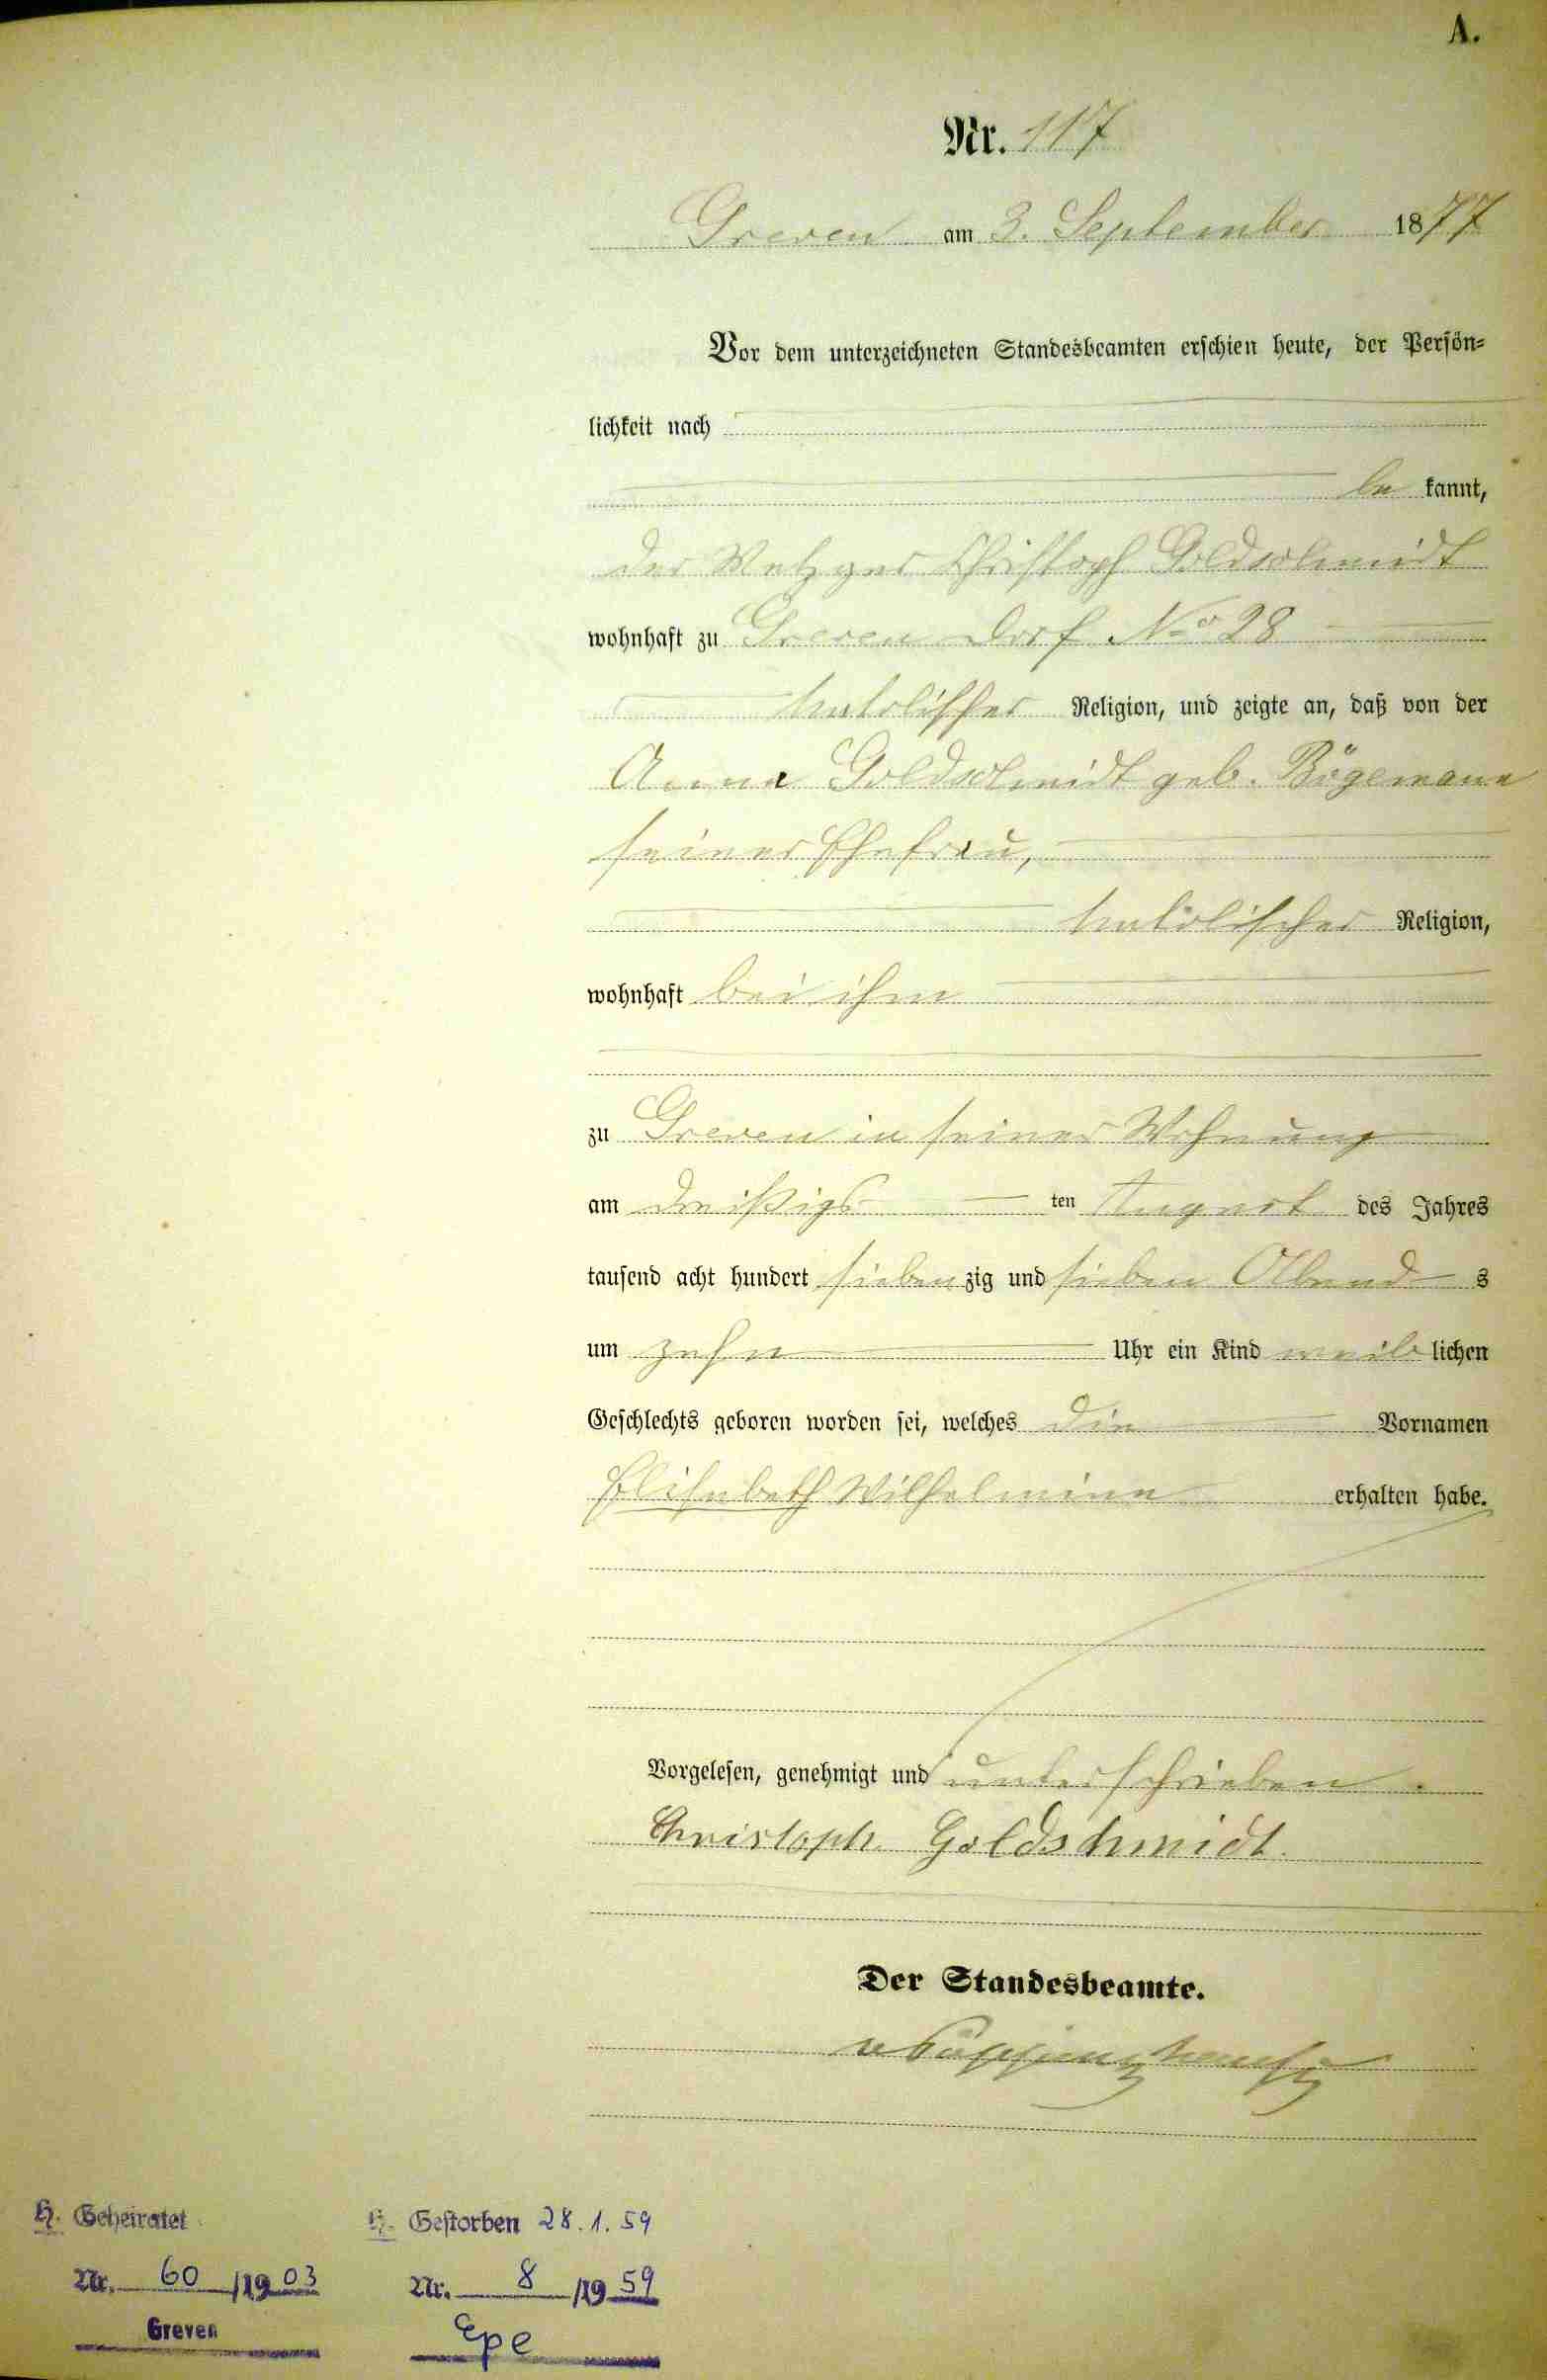 A.
Nr. 117
Greven am 3. September 1877
Vor dem unterzeichneten Standesbeamten erschien heute, der Persön-
lichkeit nach
be kannt,
der Metzger Christoph Goldschmidt
wohnhaft zu Greven Dorf No 28
katolischer Religion, und zeigte an, daß von der
Anna Goldschmidt geb. Bögemann
seiner Ehefrau,
katolischer Religion,
wohnhaft bei ihm
zu Greven in seiner Wohnung
am dreißigs ten August des Jahres
tausend acht hundert sieben zig und sieben Abend s
um zehn Uhr ein Kind weib lichen
Geschlechts geboren worden sei, welches die Vornamen
Elisabeth Wilhelmine erhalten habe.
Vorgelesen, genehmigt und unterschrieben.
Christoph Goldschmidt.
Der Standesbeamte.
H. Geheiratet H. Gestorben 28.1.59
Nr. 60 /1903 Nr. 8 /1959
Greven Epe